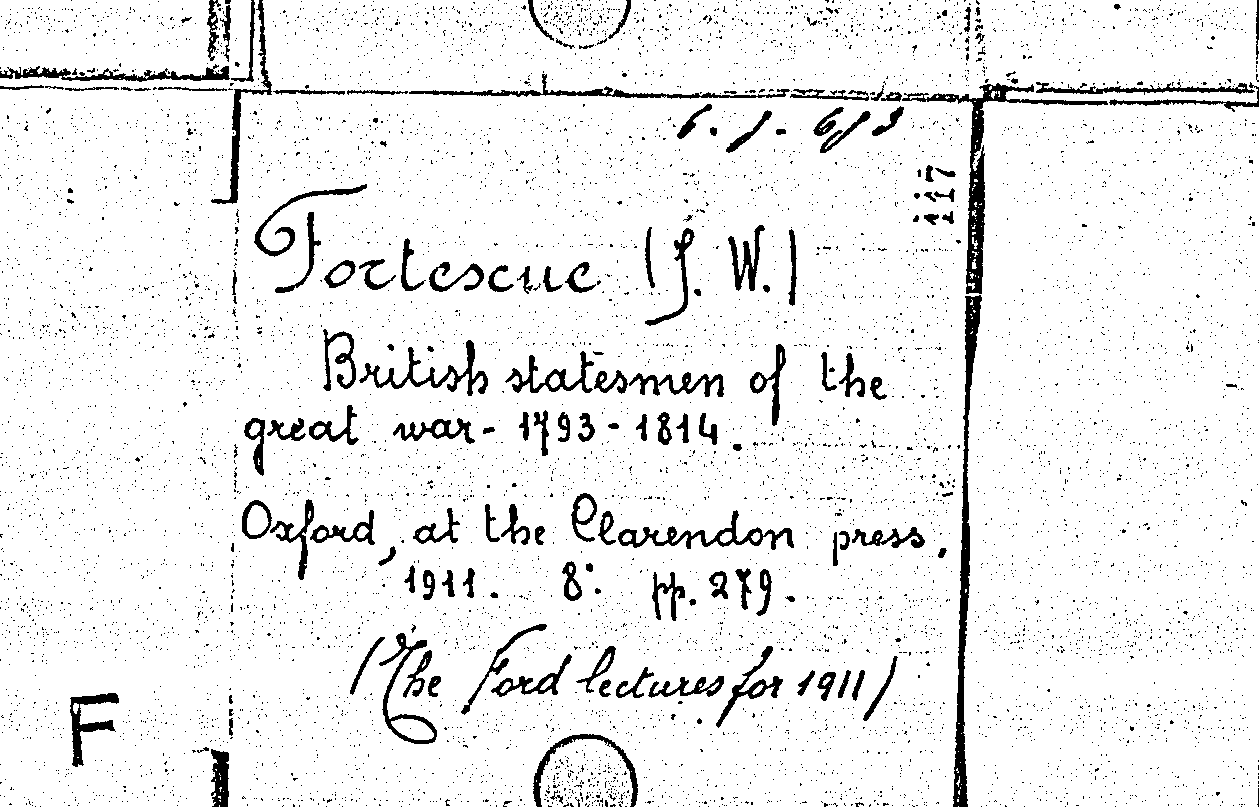 Fortescue (J. W.)
British statesmen of the
great war - 1793 - 1814.
Oxford, at the Clarendon press.
1911. 8° pp. 279.
(The Ford lectures for 1911)
F